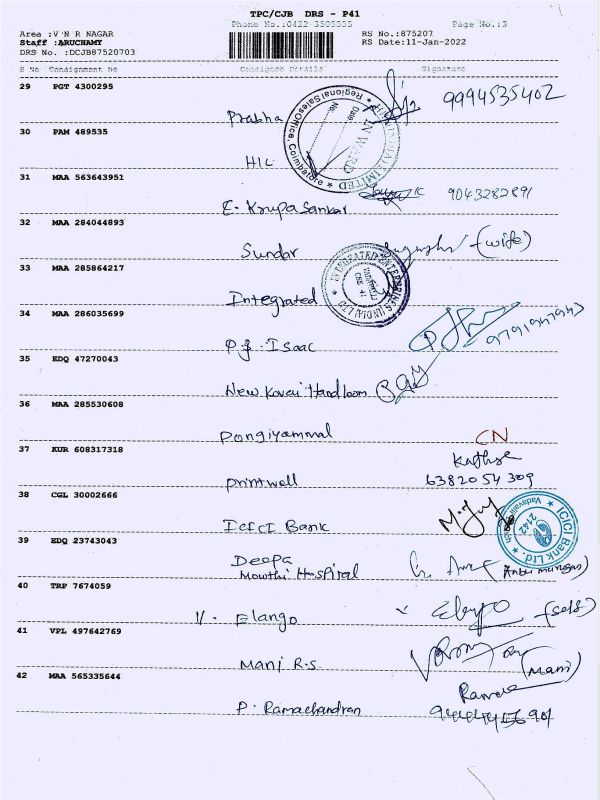 TPC/CJB DRS - P41
Phone No.:0422-3505555 Page No.:3
Area :V N R NAGAR RS No.:875207
Staff :ARUCHAMY RS Date:11-Jan-2022
DRS No. :DCJB87520703
S No Consignment No Consignee Details Signature
29 PGT 4300295
Prabha 9994535402
30 PAM 489535
HIL
Regional Sales Office, Coimbatore
LIMITED
INWARD
No.
Date
31 MAA 563643951
E. Krupasankar 9043282891
32 MAA 284044893
Sundar (wife)
33 MAA 285864217
Integrated
INTEGRATED ENTERPRISES (INDIA) LTD
34 MAA 286035699
P.J. Isaac
35 EDQ 47270043
New Kovai Handloom
36 MAA 285530608
Pongiyammal CN
37 KUR 608317318
Printwell 6382054309
38 CGL 30002666
ICICI Bank
ICICI Bank Ltd.
Vadavalli
2142
39 EDQ 23743043
Deepa
Mowthi Hospital
40 TRP 7674059
V. Elango (self)
41 VPL 497642769
Mani R.S. (Mani)
42 MAA 565335644
P. Ramachandran